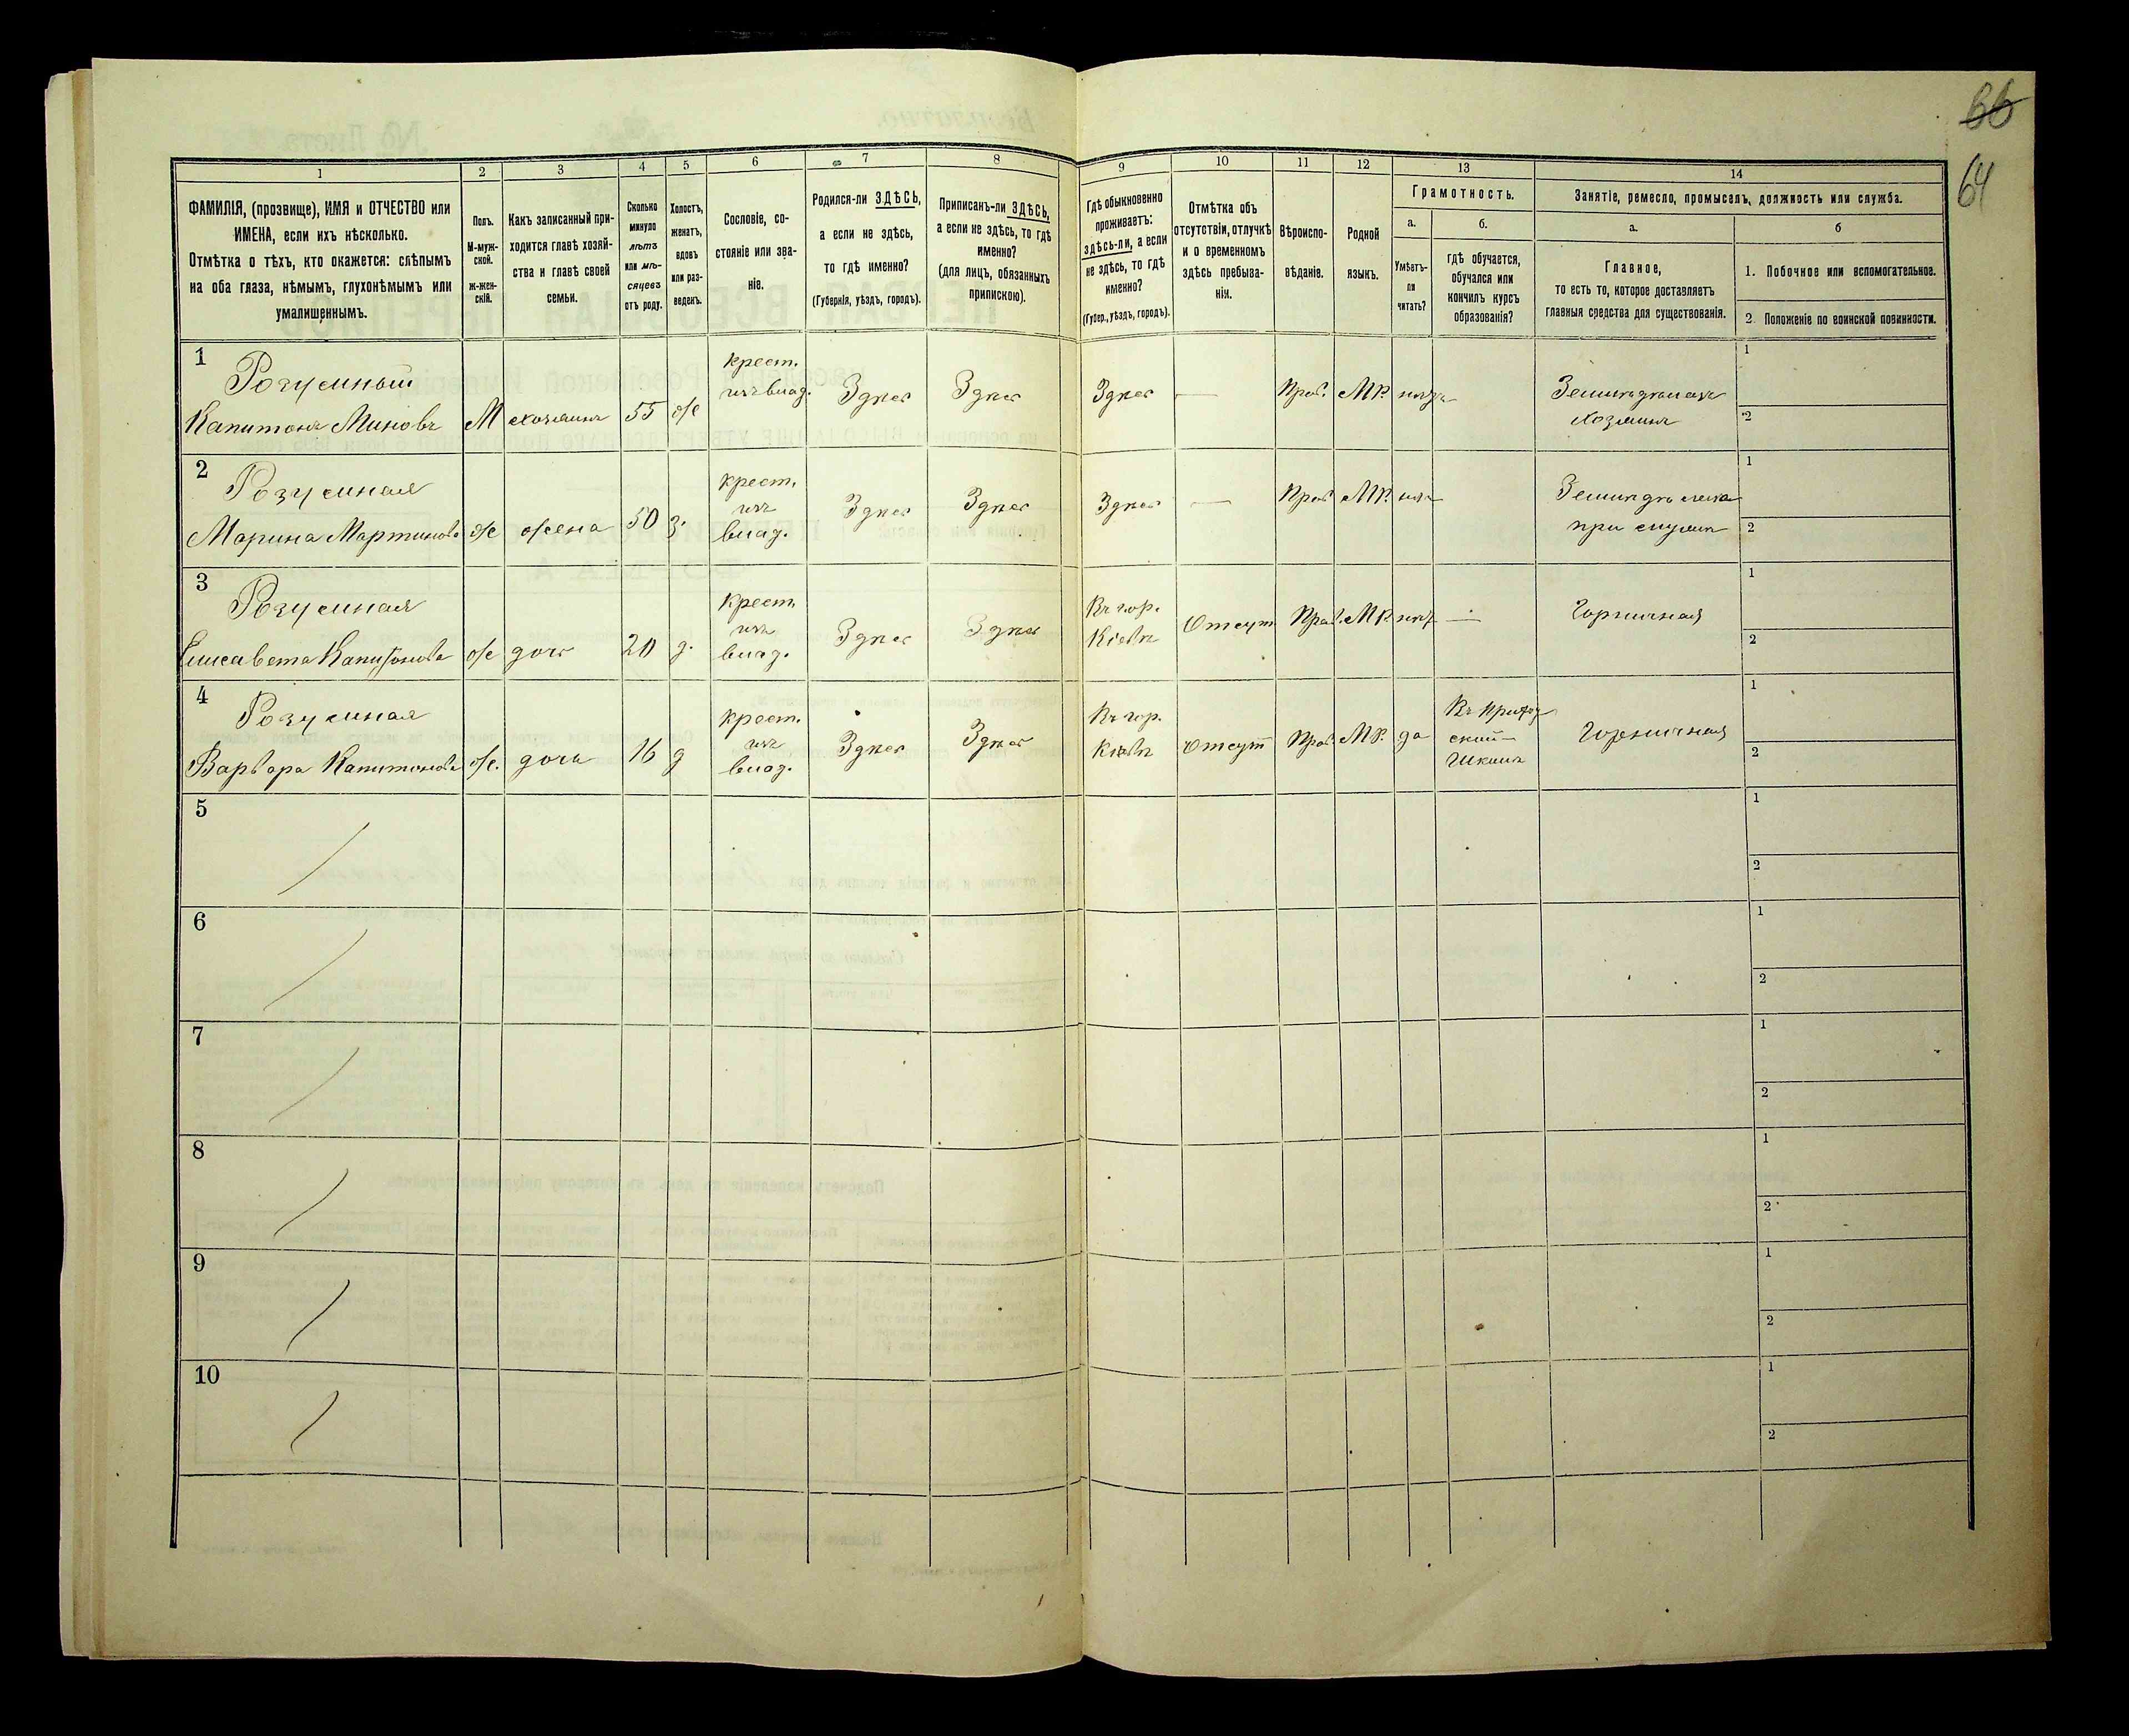 66
64
1
2
3
4
5
6
7
8
9
10
11
12
13
14
ФАМИЛІЯ, (прозвище), ИМЯ и ОТЧЕСТВО или
ИМЕНА, если ихъ нѣсколько.
Отмѣтка о тѣхъ, кто окажется: слѣпымъ
на оба глаза, нѣмымъ, глухонѣмымъ или
умалишеннымъ.
Полъ.
М-муж-
ской.
ж-жен-
скій.
Какъ записанный при-
ходится главѣ хозяй-
ства и главѣ своей
семьи.
Сколько
минуло
лѣтъ
или мѣ-
сяцевъ
отъ роду.
Холостъ,
женатъ,
вдовъ
или раз-
веденъ.
Сословіе, со-
стояніе или зва-
ніе.
Родился-ли ЗДѢСЬ,
а если не здѣсь,
то гдѣ именно?
(Губернія, уѣздъ, городъ).
Приписанъ-ли ЗДѢСЬ,
а если не здѣсь, то гдѣ
именно?
(для лицъ, обязанныхъ
припискою).
Гдѣ обыкновенно
проживаетъ:
здѣсь-ли, а если
не здѣсь, то гдѣ
именно?
(Губер., уѣздъ, городъ).
Отмѣтка объ
отсутствіи, отлучкѣ
и о временномъ
здѣсь пребыва-
ніи.
Вѣроиспо-
вѣданіе.
Родной
языкъ.
Грамотность.
а.
Умѣетъ-
ли
читать?
б.
гдѣ обучается,
обучался или
кончилъ курсъ
образованія?
Занятіе, ремесло, промыселъ, должность или служба.
а.
Главное,
то есть то, которое доставляетъ
главныя средства для существованія.
б
1. Побочное или вспомогательное.
2. Положеніе по воинской повинности.
1
Розумный
Капитонъ Миновъ
М
хозяинъ
55
ж
крест.
изъ влад.
Здѣсь
Здѣсь
Здѣсь
—
Прав.
МР.
нѣтъ
Земледѣлецъ
хозяинъ
1
2
2
Розумная
Марина Мартинова
ж
жена
50
з.
крест.
изъ
влад.
Здѣсь
Здѣсь
Здѣсь
—
Прав.
МР.
нѣтъ
при мужѣ
1
2
3
Розумная
Елисавета Капитонова
ж
дочь
20
д.
крест.
изъ
влад.
Здѣсь
Здѣсь
Въ гор.
Кіевѣ
Отсут
Прав.
МР.
нѣт
—
Горничная
1
2
4
Розумная
Варвара Капитонова
ж.
дочь
16
д
крест.
изъ
влад.
Здѣсь
Здѣсь
Въ гор.
Кіевѣ
Отсут
Прав.
МР.
да
ской
школѣ
Горничная
1
2
5
1
2
6
1
2
7
1
2
8
1
2
9
1
2
10
1
2